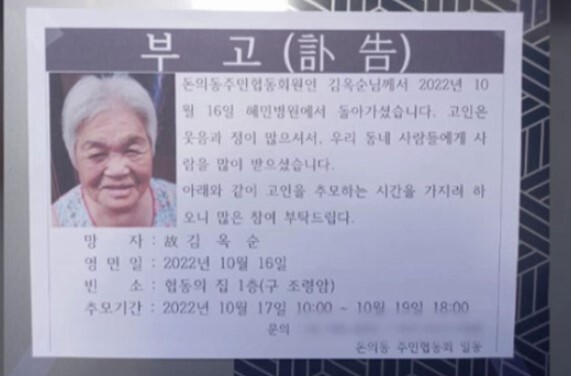 부 고 (訃 告)
돈의동주민협동회원인 김옥순님께서 2022년 10
월 16일 혜민병원에서 돌아가셨습니다. 고인은
웃음과 정이 많으셔서, 우리 동네 사람들에게 사
랑을 많이 받으셨습니다.
아래와 같이 고인을 추모하는 시간을 가지려 하
오니 많은 참여 부탁드립다.
망 자 : 故 김 옥 순
영 면 일 : 2022년 10월 16일
빈 소 : 협동의 집 1층(구 조령암)
추모기간 : 2022년 10월 17일 10:00 ~ 10월 19일 18:00
문의
돈의동 주민협동회 일동